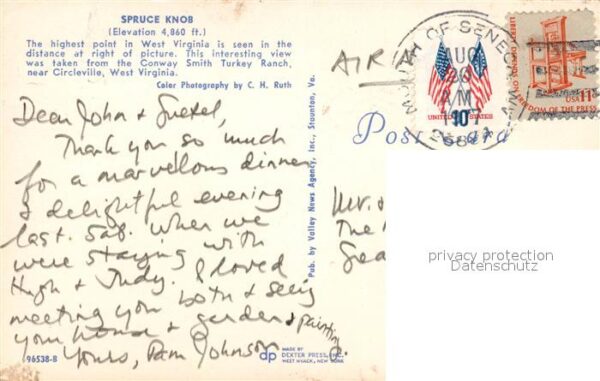 SPRUCE KNOB
(Elevation 4,860 ft.)
The highest point in West Virginia is seen in the
distance at right of picture. This interesting view
was taken from the Conway Smith Turkey Ranch,
near Circleville, West Virginia.
Color Photography by C. H. Ruth
Dear John &
Thank you so much
for a marvelous dinner
& delightful evening
last Sat. when we
were staying with
Hugh & Judy. I loved
meeting you both & seeing
your house & garden & paintings.
Yours, Pam Johnson
96538-B
Pub. by Valley News Agency, Inc., Staunton, Va.
dp
MADE BY
DEXTER PRESS, INC.
WEST NYACK, NEW YORK
AIR
MOUTH OF SENECA
AUG
AM
UNITED STATES
10c
LIBERTY DEPENDS ON
FREEDOM OF THE PRESS
USA 11c
Post Card
Mr. &
The
privacy protection
Datenschutz